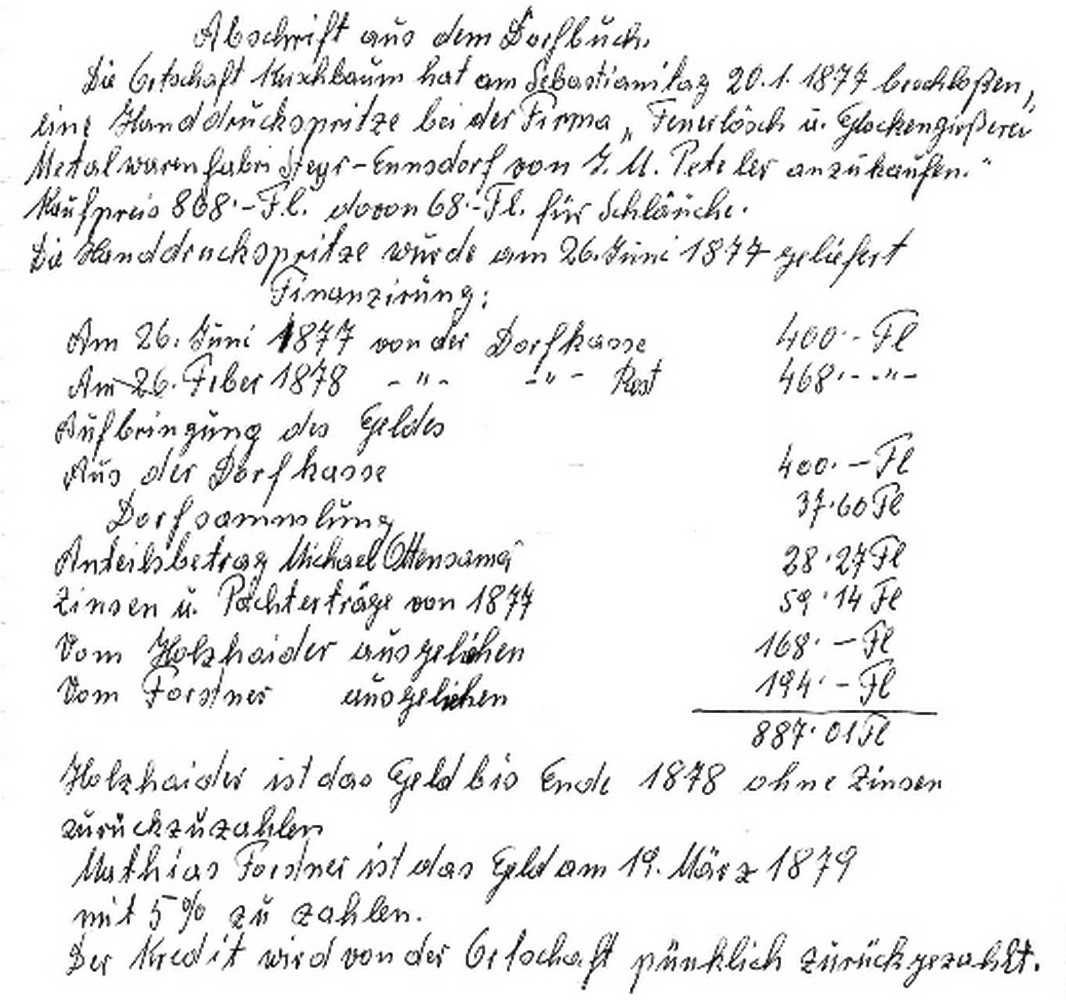 Abschrift aus dem Dorfbuch.
Die Ortschaft Kirschbaum hat am Sebastianitag 20.1.1877 beschloßen,
eine Handdruckspritze bei der Firma „Feuerlösch u. Glockengießerei
Metalwarenfabri Steyr-Ennsdorf von J. M. Peteler anzukaufen."
Kaufpreis 868.- Fl. davon 68.- Fl. für Schläuche.
Die Handdruckspritze wurde am 26. Juni 1877 geliefert
Finanzirung:
Am 26. Juni 1877 von der Dorfkasse 400.- Fl
Am 26. Feber 1878 -"- -"- Rest 468.- -"-
Aufbringung des Geldes
Aus der Dorfkasse 400.- Fl
Dorfsammlung 37.60 Fl
Anteilsbetrag Michael Ottensamer 28.27 Fl
Zinsen u. Pachterträge von 1877 59.14 Fl
Vom Holzhaider ausgelichen 168.- Fl
Vom Forstner ausgelichen 194.- Fl
887.01 Fl
Holzhaider ist das Geld bis Ende 1878 ohne Zinsen
zurückzuzahlen
Mathias Forstner ist das Geld am 19. März 1879
mit 5% zu zahlen.
Der Kredit wird von der Ortschaft pünklich zurückgezahlt.